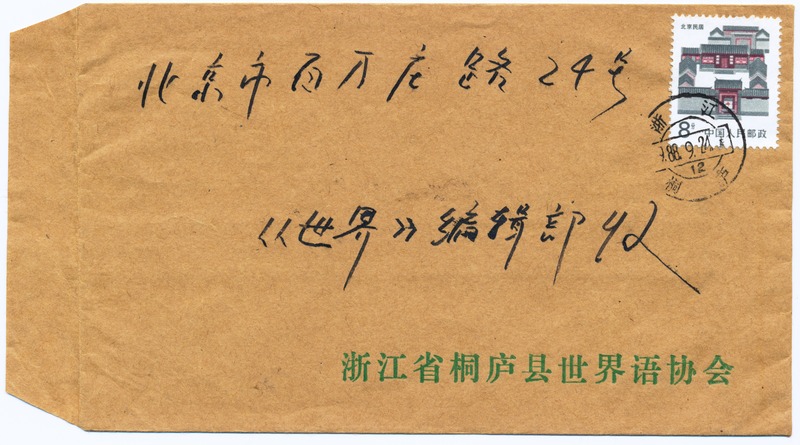 北京民居
8分 中国人民邮政
浙江
88.9.24
12
桐庐
北京市百万庄路24号
《世界》编辑部收
浙江省桐庐县世界语协会